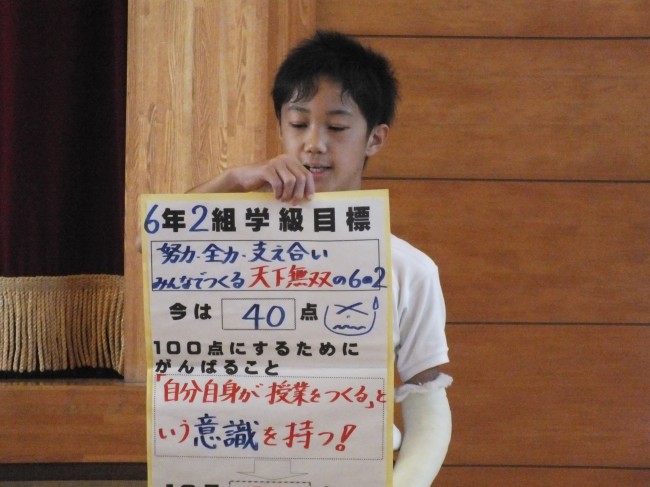 6年2組学級目標
努力・全力・支え合い
みんなでつくる天下無双の6の2
今は 40 点
100点にするために
がんばること
「自分自身が授業をつくる」と
いう意識を持つ!